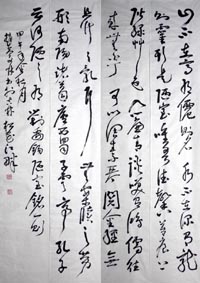 山不在高有僊則名水不在深有龍
則靈斯是陋室惟吾德馨苔痕上
階綠草色入簾青談笑有鴻儒往
來無白丁可以調素琴閱金經無
絲竹之亂耳無案牘之勞
形南陽諸葛廬西蜀子雲亭孔子
云何陋之有劉禹錫陋室銘一首
甲午年秋月